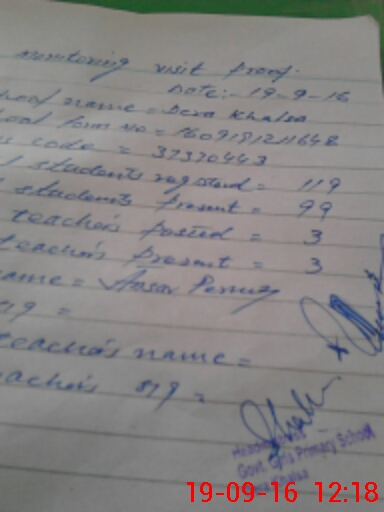 monitoring visit Proof.
Date:- 19-9-16
hool name = Dera Khalsa
ool form no = 1609191211648
s code = 37370443
l students registered = 119
students Present = 99
teacher's Posted = 3
teacher's Present = 3
name =
719 =
teacher's name =
eacher's 819 =
Headmistress
Govt. Girls Primary School
Dera Khalsa
19-09-16 12:18